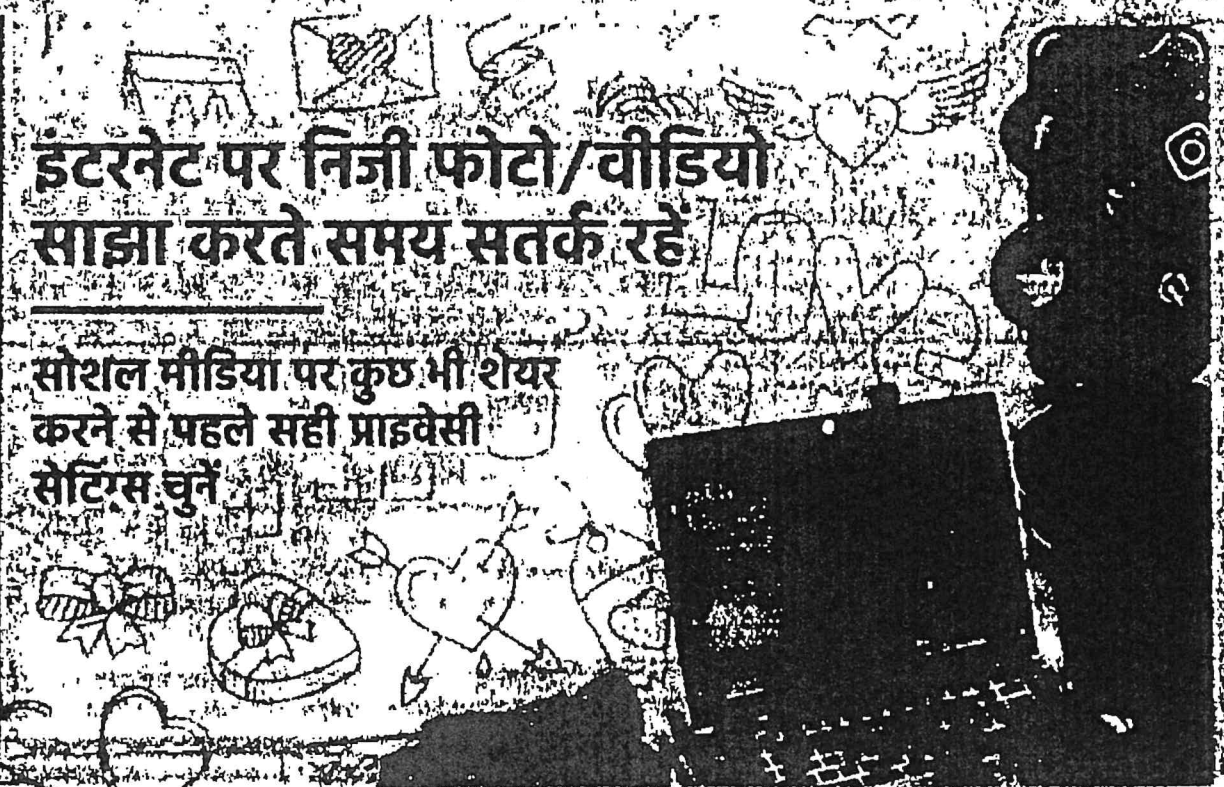 इंटरनेट पर निजी फोटो/वीडियो
साझा करते समय सतर्क रहें
LOVE
सोशल मीडिया पर कुछ भी शेयर
करने से पहले सही प्राइवेसी
सेटिंग्स चुनें